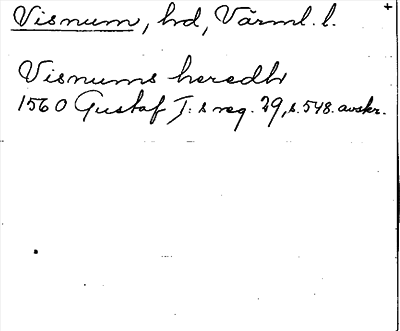 Visnum, hd, Värml. l.
Visnums heredh
1560 Gustaf I:s reg. 29, s. 548. avskr.